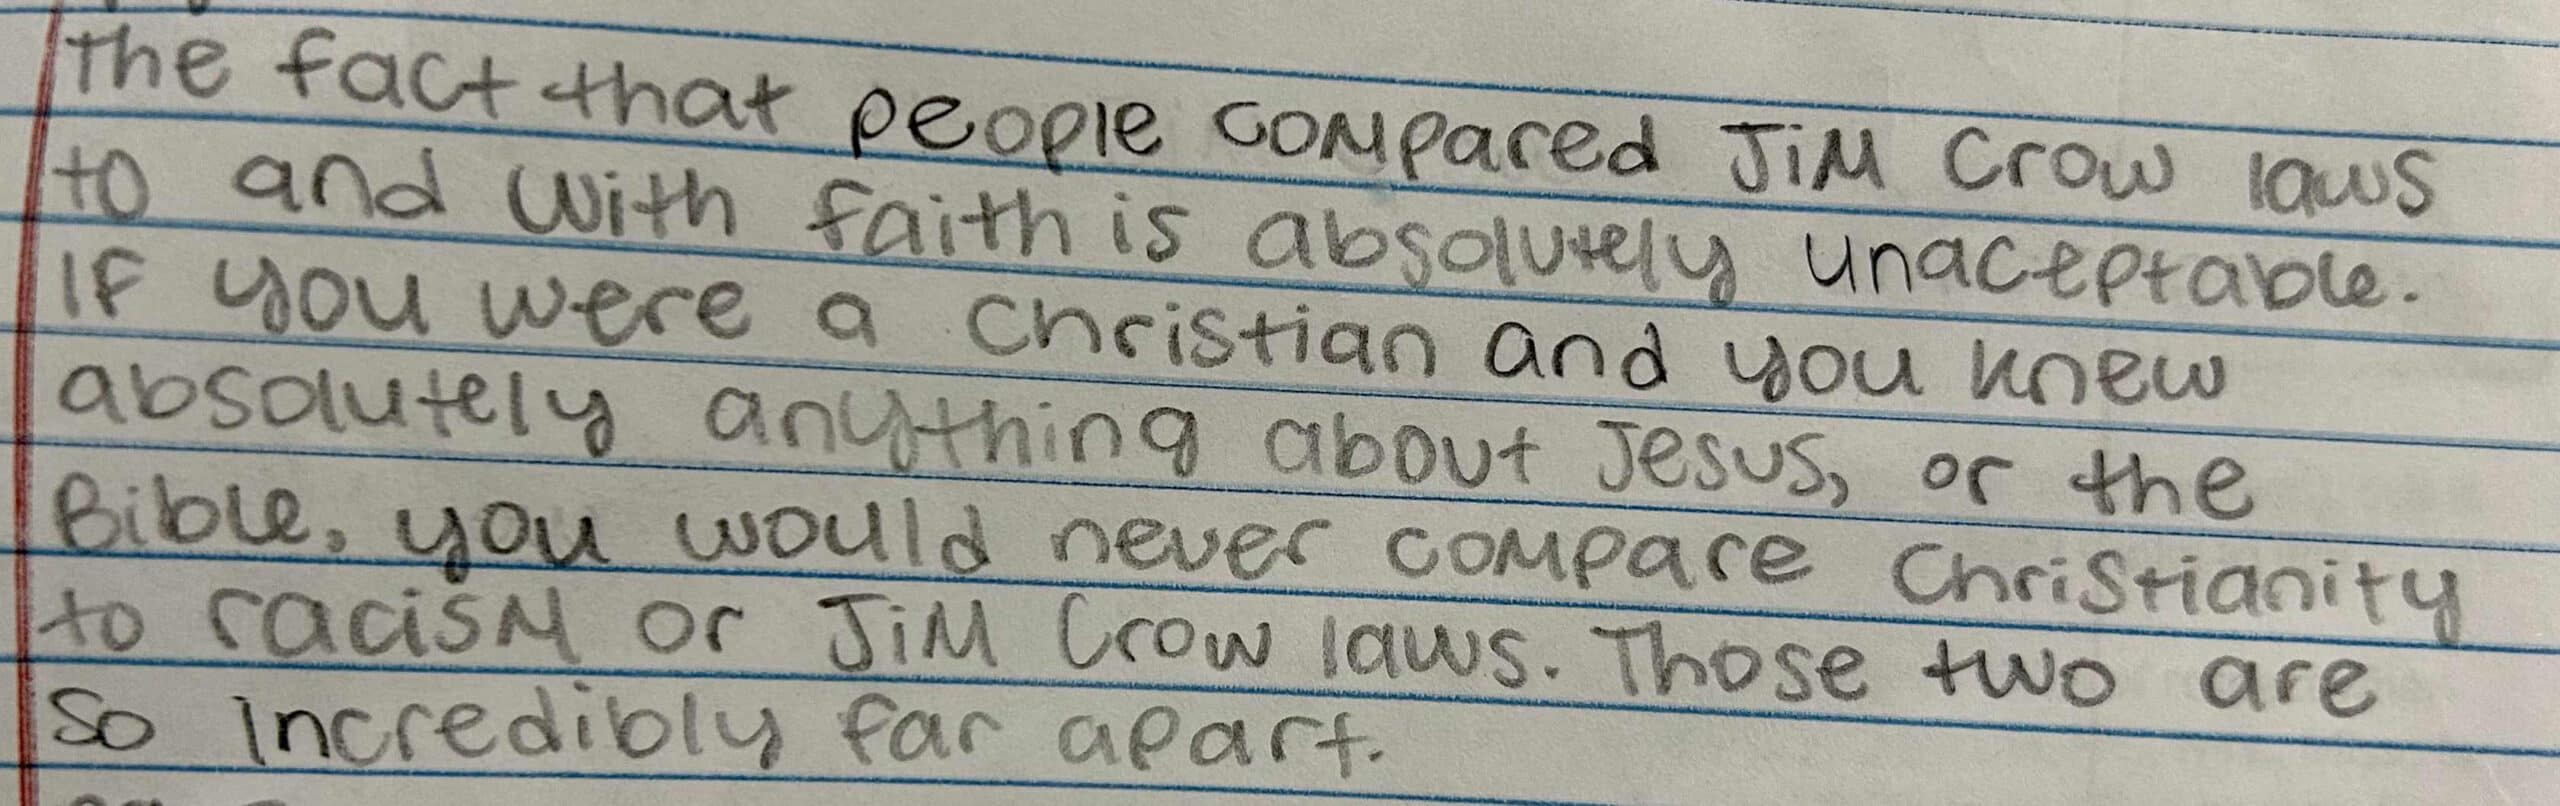 The fact that people compared Jim Crow laws
to and with faith is absolutely unaceptable.
If you were a Christian and you knew
absolutely anything about Jesus, or the
Bible, you would never compare Christianity
to racism or Jim Crow laws. Those two are
so incredibly far apart.